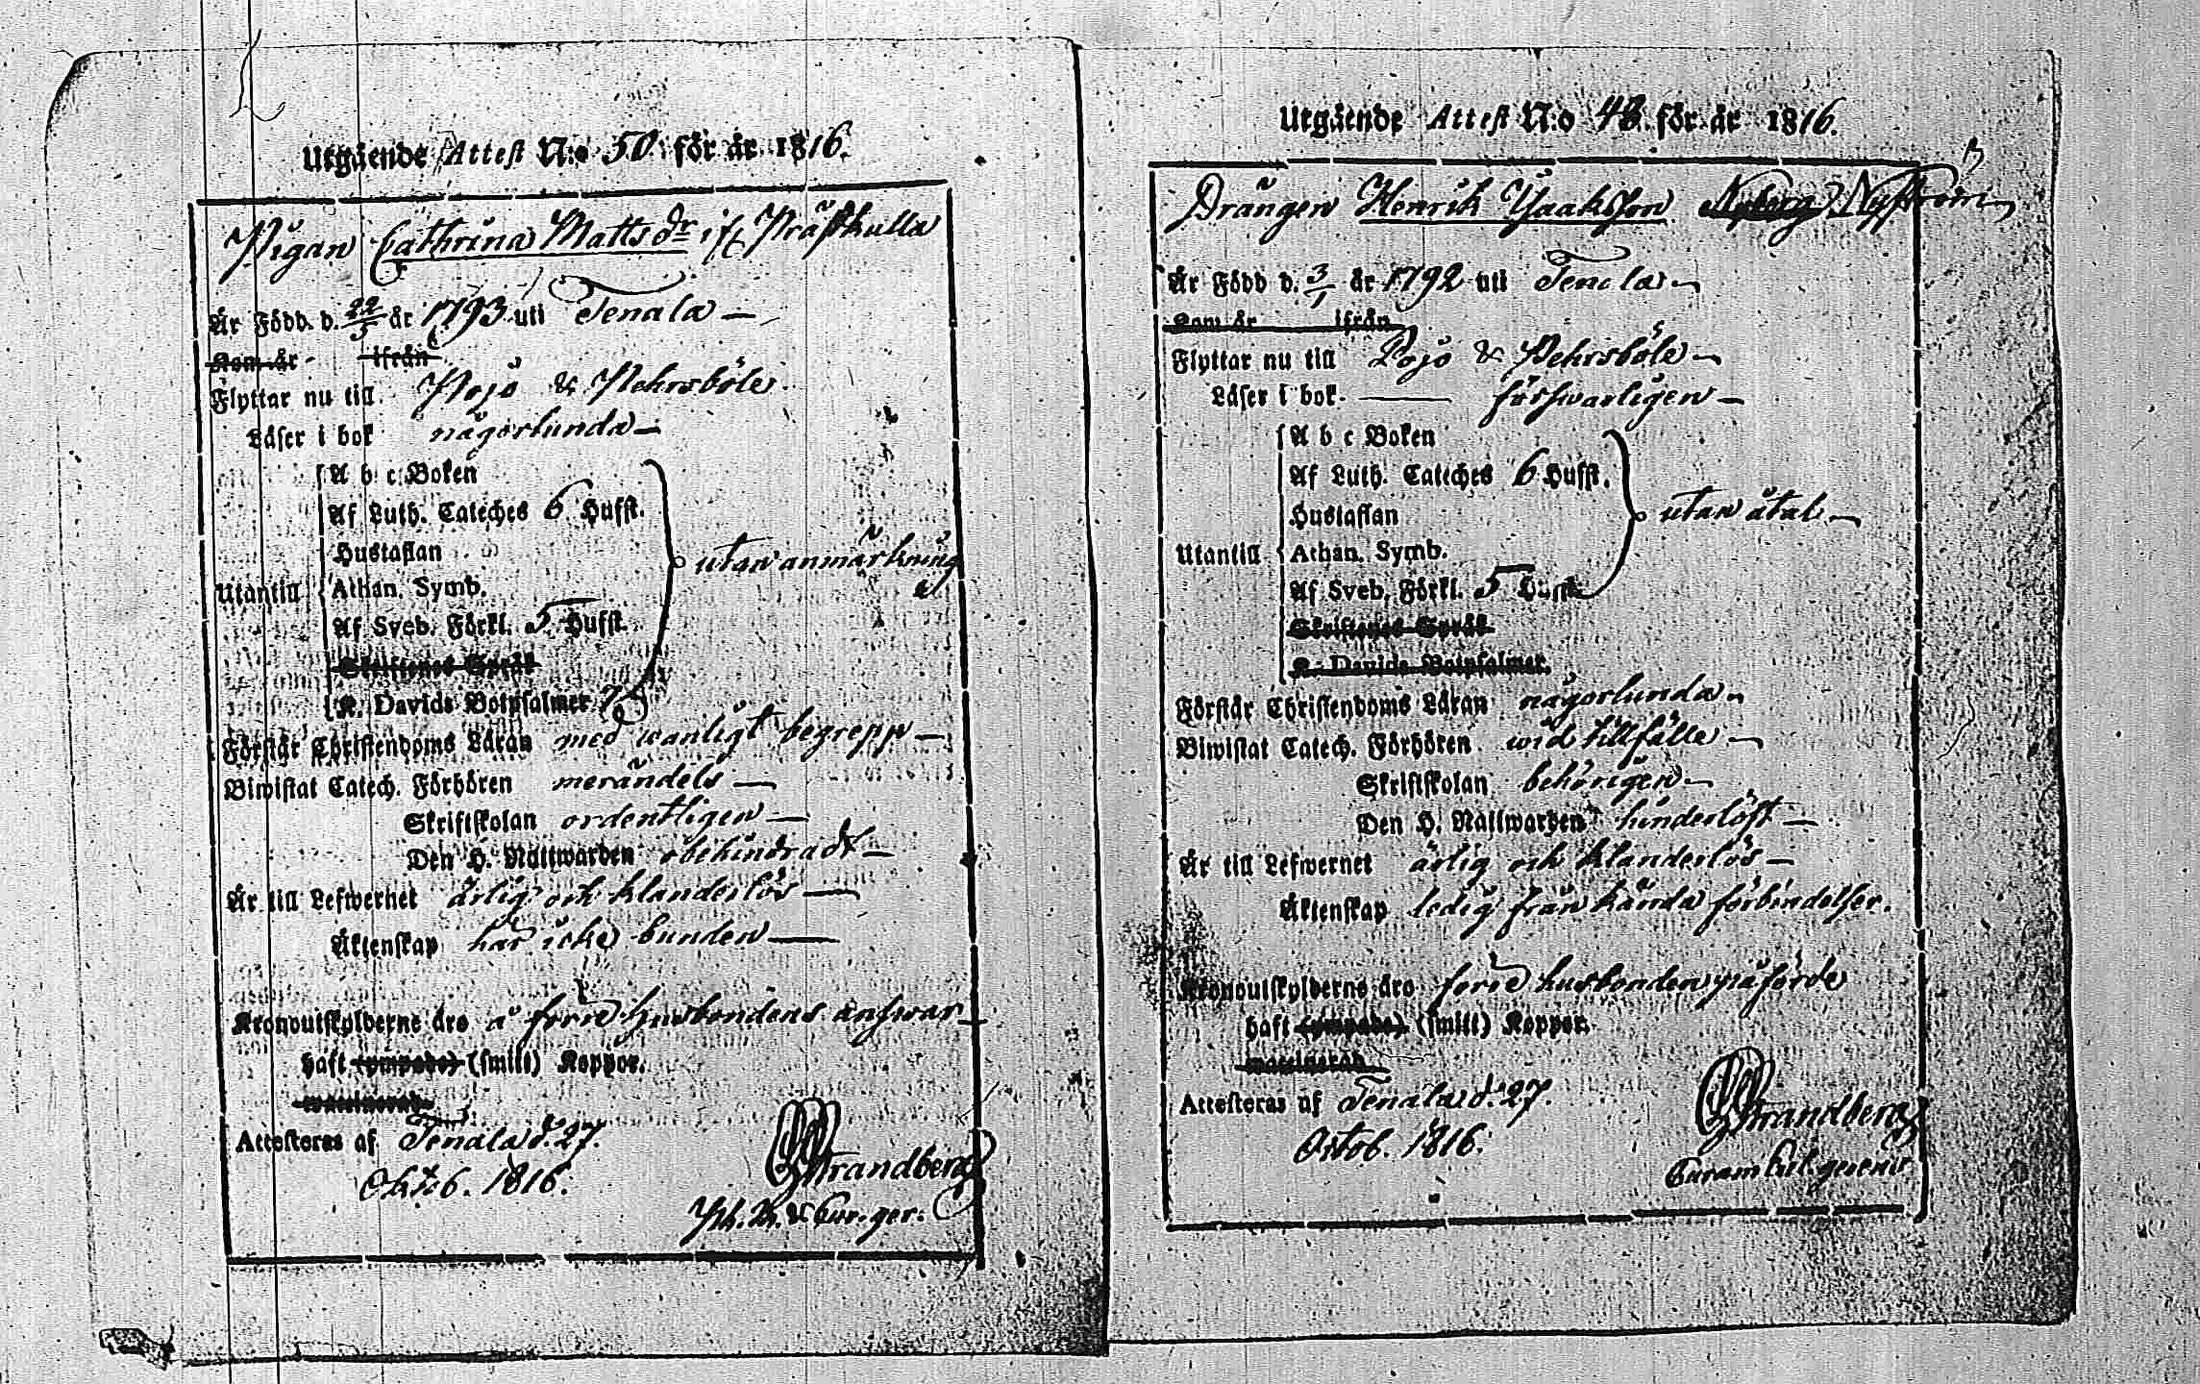 Utgående Attest N:o 50 för år 1816.
Pigan Cathrina Mattsdr ifr. Präskulla
Är Född d. 22/5 år 1793 uti Tenala —
Kom år ifrån
Flyttar nu till Pojo & Pehrsböle
Läser i bok någorlunda —
A b c Boken
Af Luth. Cateches 6 Hufst.
Hustaflan
utan anmärkning
Utantill Athan. Symb.
Af Sveb. Förkl. 5 Hufst.
Skriftenes Språk
K. Davids Botpsalmer 7
Förstår Christendoms Läran med wanligt begrepp —
Biwistat Catech. Förhören merändels —
Skriftskolan ordentligen —
Den H. Nattwarden obehindradt —
Är till Lefwernet ärlig och klanderlös —
Äktenskap har icke bunden —
Kronoutskylderne äro å förre Husbondens answar —
haft (ympade) (smitt) Koppor.
vaccinerad
Attesteras af Tenala d. 27.
Oktob. 1816.
Strandberg
& Cur. ger.
Utgående Attest N:o 48 för år 1816.
Drängen Henrik Ysaaksson Nyberg Nyström
Är Född d. 3/1 år 1792 uti Tenala —
Kom år ifrån
Flyttar nu till Pojo & Pehrsböle —
Läser i bok — förswarligen —
A b c Boken
Af Luth. Cateches 6 Hufst.
Hustaflan
utan åtal —
Utantill Athan. Symb.
Af Sveb. Förkl. 5 Hufst.
Skriftenes Språk
K. Davids Botpsalmer
Förstår Christendoms Läran någorlunda —
Biwistat Catech. Förhören wid tillfälle —
Skriftskolan behörigen —
Den H. Nattwarden hinderlöst —
Är till Lefwernet ärlig och klanderlös —
Äktenskap ledig från kända förbindelser.
Kronoutskylderne äro förre husbonden påförde
haft (ympade) (smitt) Koppor.
vaccinerad
Attesteras af Tenala d. 27.
Octob. 1816.
Strandberg